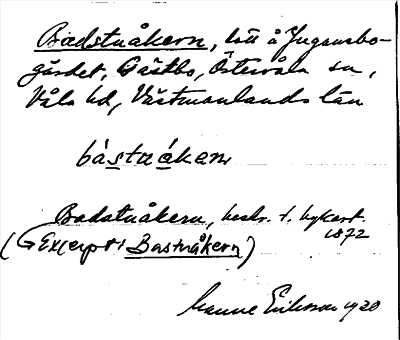 Badstuåkern, lott å Ingmarsbo-
gärdet, Gästbo, Östervåla sn,
Våla hd, Västmanlands län
bástuákaṇ
Badstuåkern, beskr. t. lzkart.
1872
(Excerpt: Bastuåkern)
Manne Eriksson 1920